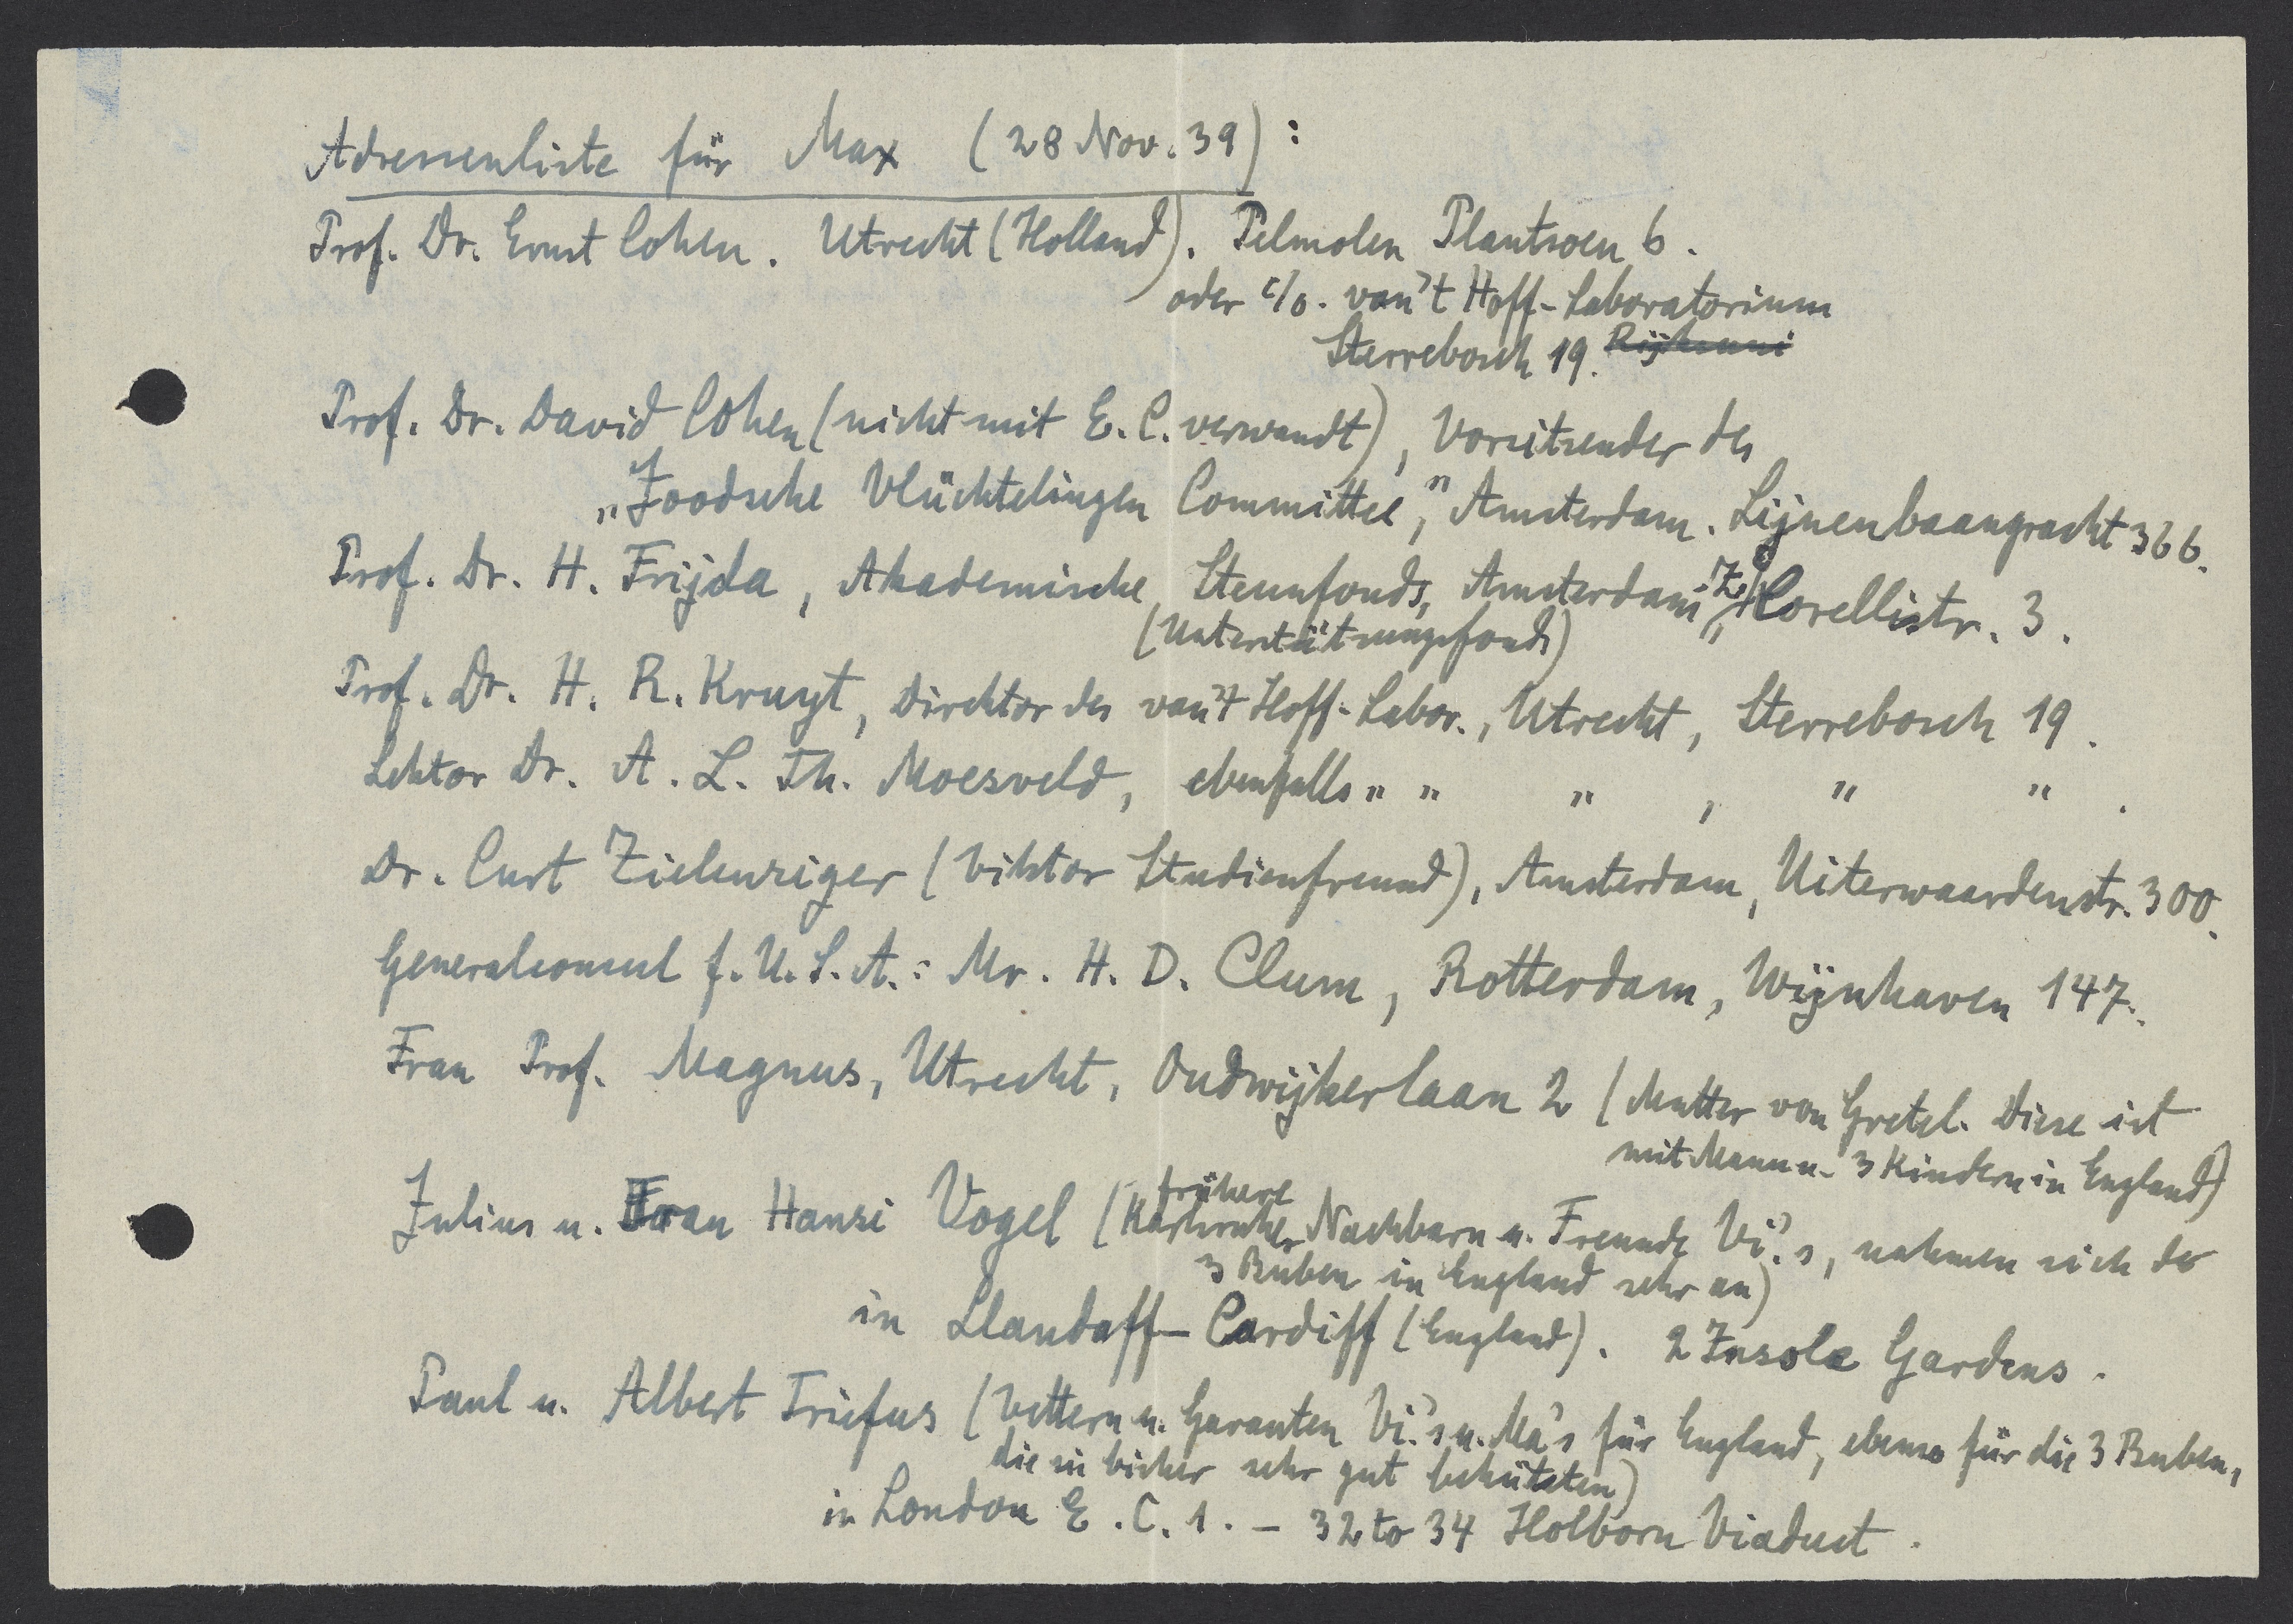 Adressenliste für Max (28 Nov. 39):
Prof. Dr. Ernst Cohen. Utrecht (Holland). Pelmolen Plantsoen 6.
oder c/o. van't Hoff-Laboratorium
Sterrebosch 19. Rijksuni
Prof. Dr. David Cohen (nicht mit E. C. verwandt), Vorsitzender des
„Joodsche Vlüchtelingen Committee", Amsterdam. Lijnenbaangracht 366.
Prof. Dr. H. Frijda, Akademische Steunfonds, Amsterdam Z, Corellistr. 3.
(Unterstützungsfonds)
Prof. Dr. H. R. Kruyt, Direktor des van't Hoff-Labor., Utrecht, Sterrebosch 19.
Lektor Dr. A. L. Th. Moesveld, ebenfalls " " " , " " .
Dr. Curt Zielenziger (Viktor Studienfreund), Amsterdam, Uiterwaardenstr. 300.
Generalconsul f. U.S.A.: Mr. H. D. Clum, Rotterdam, Wijnhaven 147.
Frau Prof. Magnus, Utrecht, Oudwijkerlaan 2 (Mutter von Gretel. Diese ist
mit Mann u. 3 Kindern in England)
Julius u. Frau Hansi Vogel (frühere Karlsruher Nachbarn u. Freunde Vi.'s, nahmen sich der
3 Buben in England sehr an)
in Llandaff-Cardiff (England). 2 Insole Gardens.
Paul u. Albert Triefus (Vettern u. Garanten Vi.'s u. Ma's für England, ebenso für die 3 Buben,
die sie bisher sehr gut behüteten)
in London E.C.1. - 32 to 34 Holborn Viaduct.